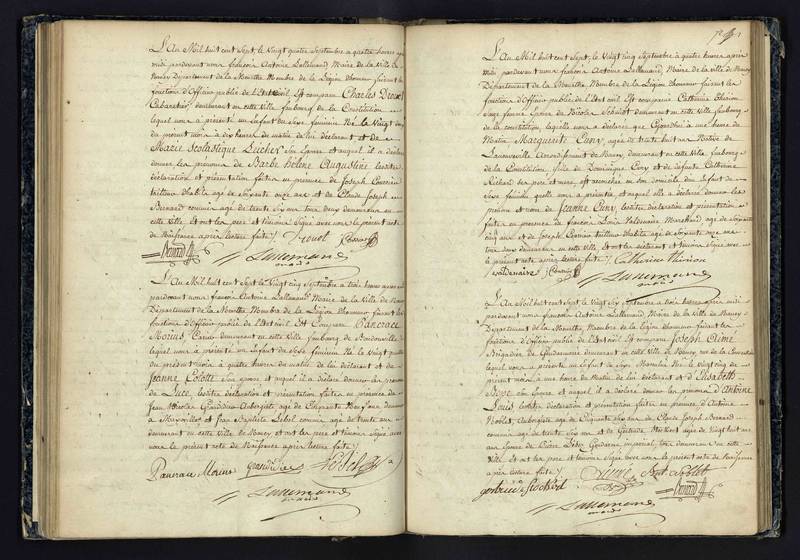 L'An Mil huit cent Sept, le Vingt quatre Septembre a quatre heures après
midi pardevant nous françois Antoine Lallemand Maire de la Ville de
Nancy Departement de la Meurthe Membre de la Légion d'honneur faisant les
fonctions d'Officier public de l'Etat civil Est comparu Charles Drouot
Cabaretier, demeurant en cette Ville faubourg de la Constitution
lequel nous a présenté un Enfant du Sexe féminin Né le Vingt
du present mois à dix heures du matin de lui déclarant et de
Marie Scolastique son Epouse et auquel il a déclaré
donner les prénoms de Barbe hélène Augustine lesdites
déclaration et présentation faites en présence de Joseph
tailleur d'habits agé de Soixante onze ans et de Claude Joseph
Bernard commis agé de trente Six ans tous deux demeurant en
cette Ville et ont les pere et témoins Signé avec nous le présent acte
de Naissance après lecture faite /. Drouot
Bernard
Lallemand
L'An Mil huit cent Sept le Vingt cinq Septembre a trois heures après midi
pardevant nous françois Antoine Lallemand Maire de la Ville de Nancy
Département de la Meurthe Membre de la Légion d'honneur faisant les
fonctions d'Officier public de l'Etat civil Est Comparu Pancrace
Morius demeurant en cette Ville faubourg de
lequel nous a présenté un Enfant du Sexe féminin Né le Vingt quatre
du présent mois à quatre heures du matin de lui déclarant et de
Jeanne Colotte Son Epouse et auquel il a déclaré donner le prenom
de Luce, lesdites déclaration et présentation faites en présence de
Jean Nicolas Aubergiste agé de Cinquante
à et Jean Baptiste Lebel comme agé de trente
demeurant en cette Ville de Nancy et ont les pere et témoins Signé avec
nous le présent acte de Naissance après lecture faite /.
Pancrace Morius
Lallemand
L'An Mil huit cent Sept, le Vingt cinq Septembre à quatre heures après
midi pardevant nous françois Antoine Lallemand, Maire de la Ville de Nancy
Département de la Meurthe Membre de la Légion d'honneur faisant les
fonctions d'Officier public de l'Etat civil Est comparue Catherine Thirion
Sage femme Epouse de Nicolas demeurant en cette Ville faubourg
de la constitution, laquelle nous a déclaré que Cejourd'hui à une heure du
Matin Marguerite Cuny, agée de trente huit ans Native de
Laneuveville Arrondissement de Nancy, demeurant en cette Ville faubourg
de la Constitution fille de Dominique Cuny et de defunte Catherine
Richard Ses pere et mere, est accouchée en Son domicile d'un Enfant de
Sexe féminin qu'elle nous a présenté, et auquel elle a déclaré donner les
prénom et nom de Jeanne Cuny, lesdites déclaration et présentation
faites en présence de Francois Louis Valdenaire Marchand agé de Soixante
cinq ans et de Joseph tailleur d'habits agé de Soixante onze ans
tous deux demeurant en cette Ville et ont les déclarant et témoins Signé avec nous
le présent acte après lecture faite /. Catherine thirion
valdenaire
Lallemand
L'An Mil huit cent Sept le Vingt Six Septembre a trois heures après midi
pardevant nous françois Antoine Lallemand Maire de la Ville de Nancy
Département de la Meurthe, Membre de la Légion d'honneur faisant les
fonctions d'Officier public de l'Etat civil Est comparu Joseph Aimé
Brigadier de Gendarmerie demeurant en cette Ville de Nancy, rue de la Constitution
lequel nous a présenté un Enfant du Sexe Masculin Né le Vingt cinq du
présent mois à une heure du Matin de lui déclarant et d'Elisabeth
son Epouse et auquel il a déclaré donner les prénoms d'Antoine
Louis, lesdites déclaration et présentation faites en présence d'Antoine
Noblet, Aubergiste agé de Cinquante Six ans de Claude Joseph Bernard
commis agé de trente Six ans et de agé de Vingt huit ans
demeurant en cette
Ville Et ont les pere et témoins, Signé avec nous le présent acte de Naissance
après lecture faite /.
Bernard
Lallemand